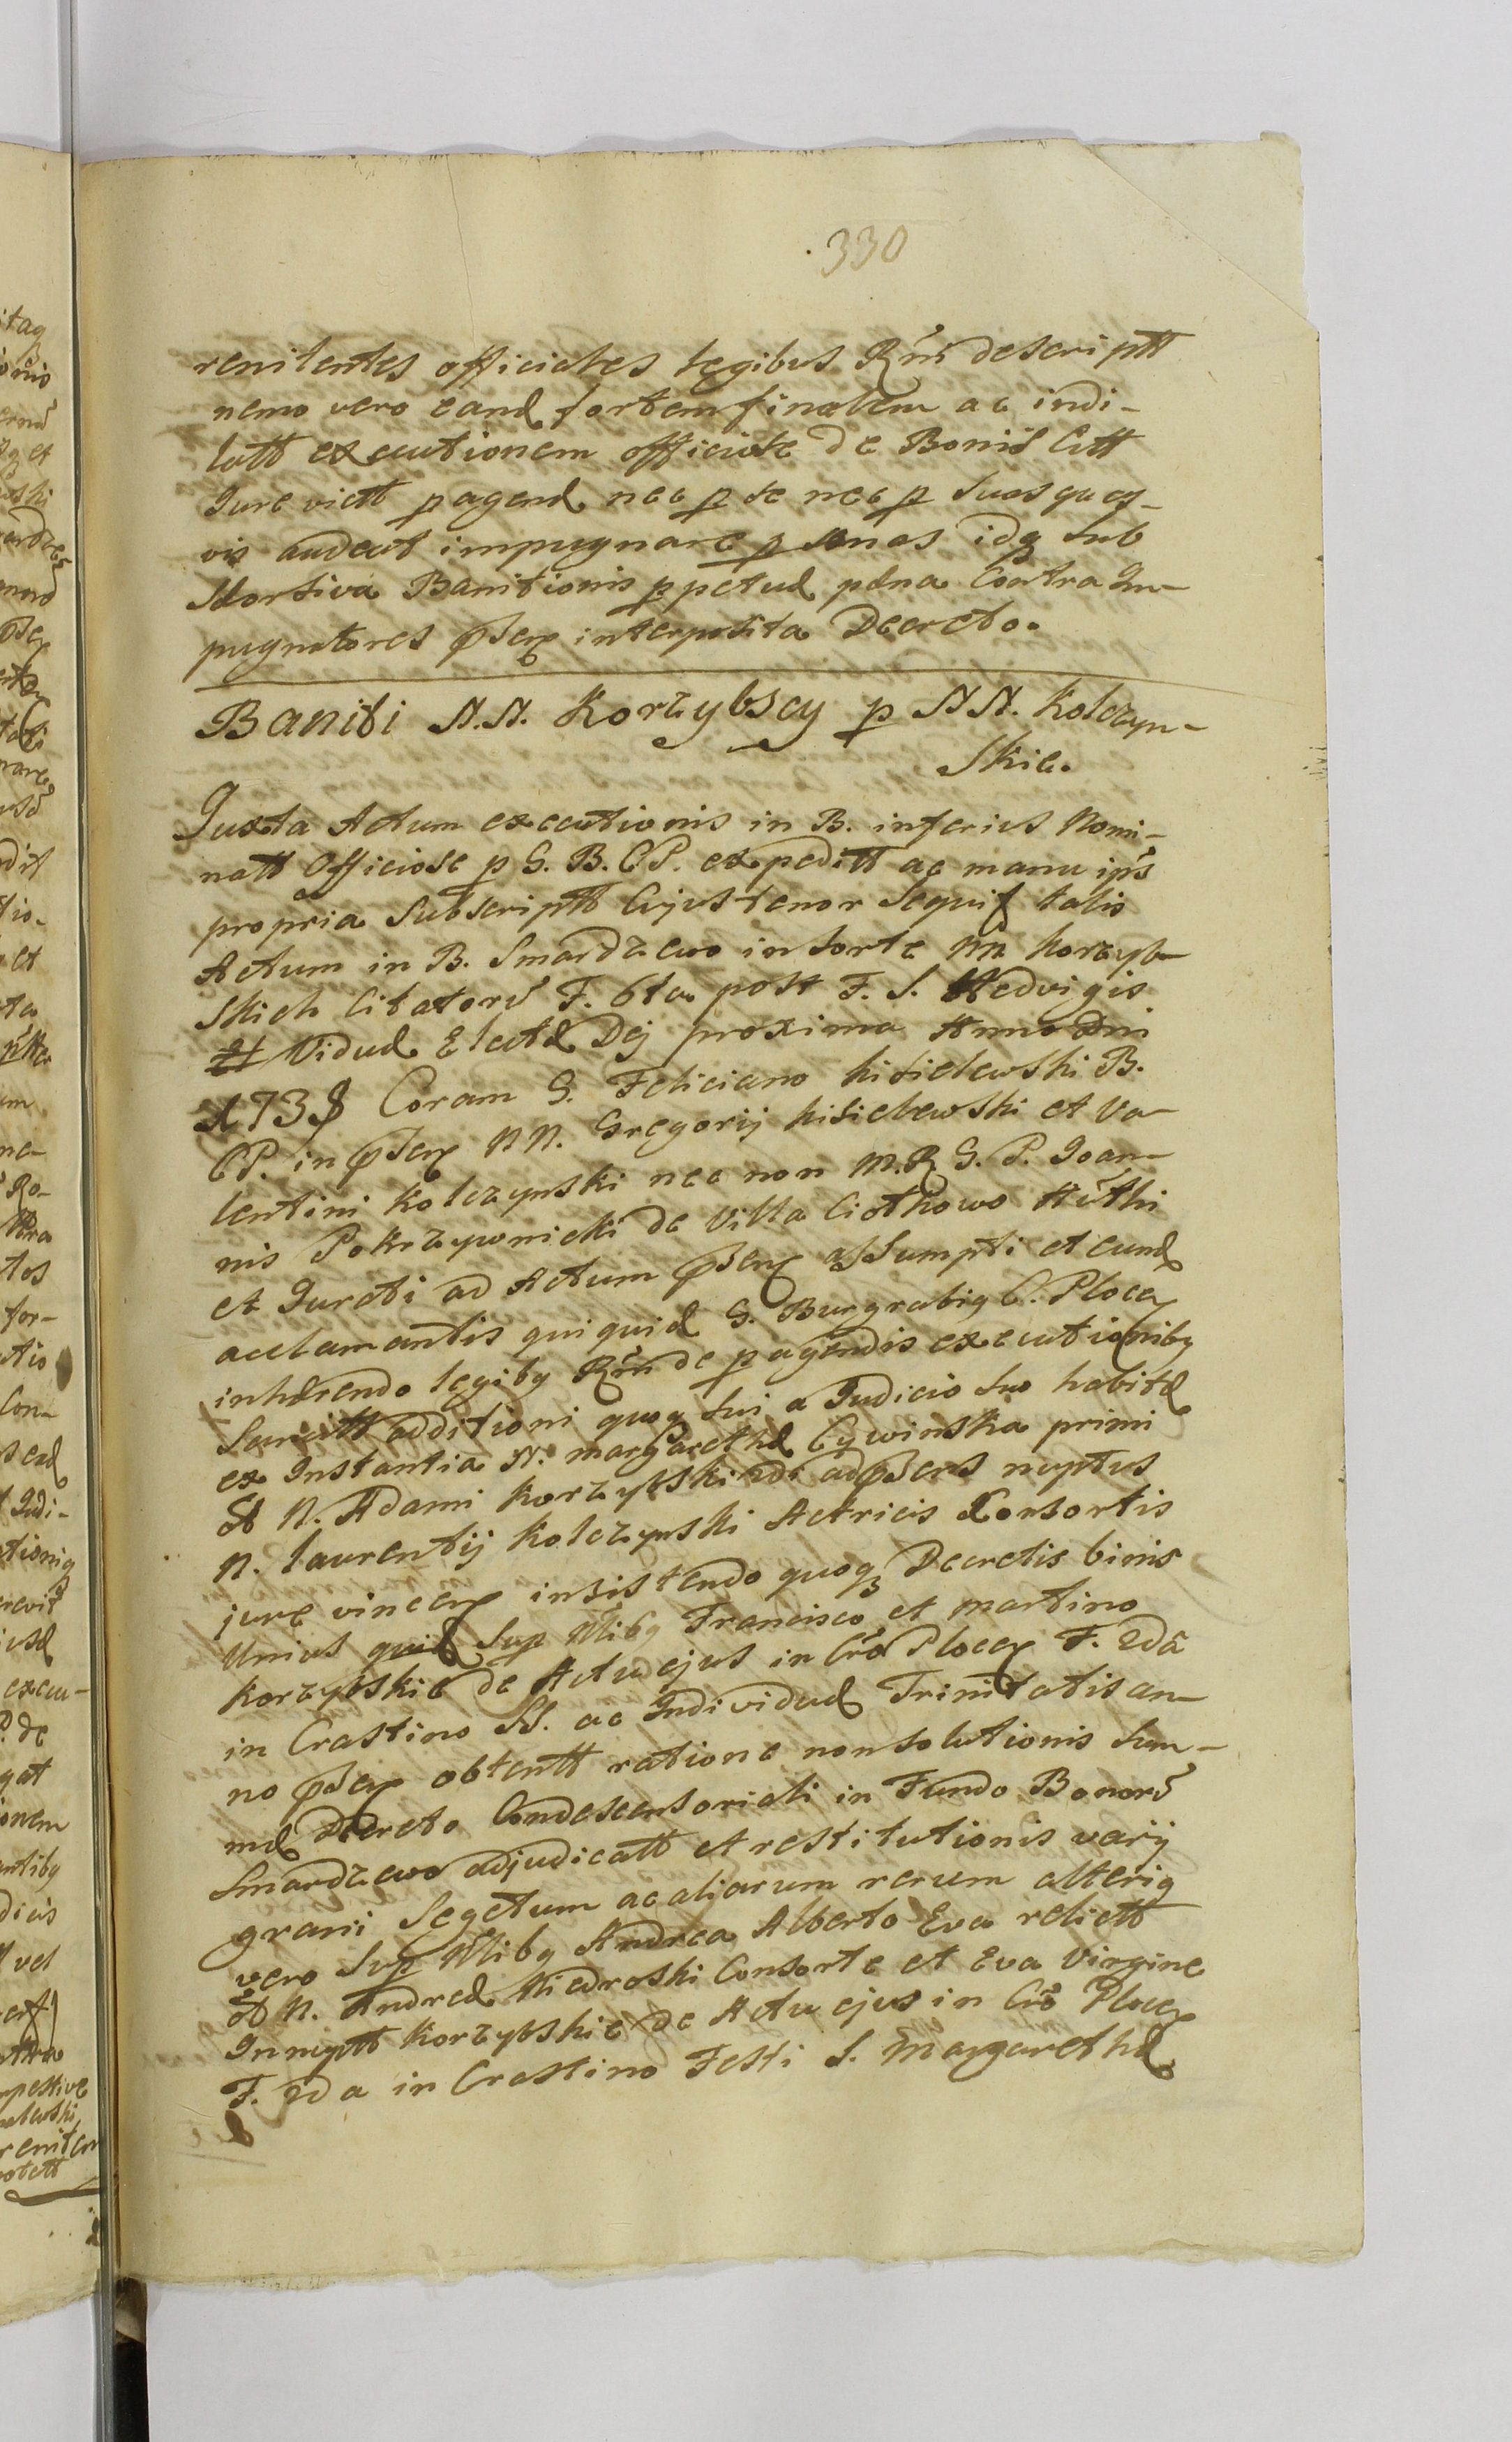 330
renitentes officiales legibus Rni descriptt
nemo vero eand sortem finalem ac indi-
latt executionem officiose de Bonis Citt
Jure victt p agend nec p se nec p suas quas-
vis audeat impugnare psonas idq sub
Mortiva Banitionis ppetuæ pœna Contra Im-
pugnatores pnsen interposita Decreto.
Baniti N.N. Korzybscy p N N. Kolczyn-
skie.
Juxta Actum executionis in B. inferius Nomi-
natt Officiose p G. B. CP. expeditt ac manu ips
propria Subscriptt Cujus tenor Sequit talis
Actum in B. Smardzewo in sorte NN Korzyb-
skich Citatorū F. 6ta post F. S. Hedvigis
Viduæ Electæ Dej proxima Anno Dni
1738 Coram G. Feliciano Kisielewski B.
CP. in pnsen NN. Gregorij Kisielewski et Va-
lentini Kolczynski nec non M.R G. P. Joan-
nis Pokrzywnicki de Villa Ciothowo
et Jurati ad Actum pnsen assumpti et eund
acclamantis quiquid G. Burgrabiq C. Plocen
inhærendo legibq Rni de p agendis executionibq
Sancitt additioni quoq sui a Judicio suo habitæ
ex Instantia N. Margarethæ Cywinska primi
N. Adami Korzybski 2di ad pnsens nuptus
N. Laurentij Kolczynski Actricis Consortis
jure vincen insistendo quoq Decretis binis
Unius quid Sup Nlibq Francisco et Martino
Korzybskie de Actu ejus in Cro Plocen F. 2da
in Crastino SS. ac Individuæ Trinitatis an-
no pnsen obtentt ratione non solutionis sum-
mæ Decreto Condescensoriali in Fundo Bonorū
Smardzewo adjudicatt et restitutionis varij
grani Segetum ac aliarum rerum alteriq
vero Sup Nlibq Andrea Alberto Eva relictt
N. Andreæ Niedroski Consorte et Eva Virgine
Innuptt Korzybskie de Actu ejus in Cro Plocen
F. 2da in Crastino Festi S. Margarethæ